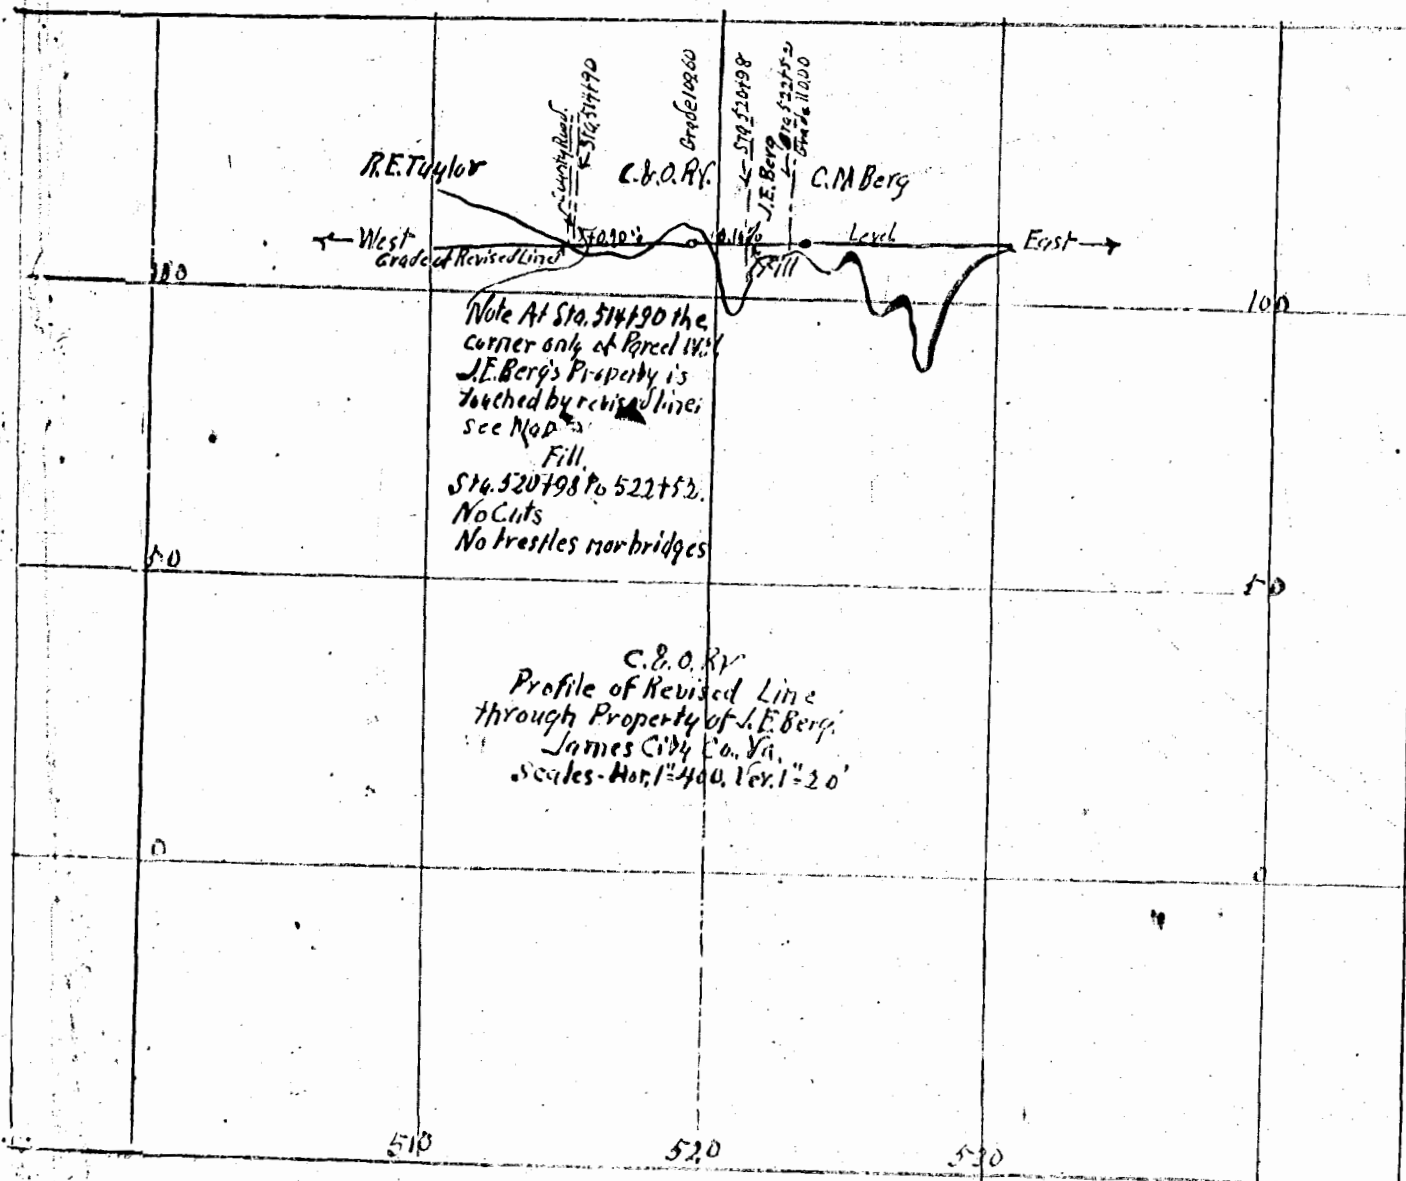 County Road.
Sta. 514+90
Grade 109.60
Sta. 520+98
J.E. Berg
Sta. 522+52
Grade 110.00
R.E. Taylor
C.&O. Ry.
C.M Berg
West
Level
East
Grade of Revised Line
Fill
100
100
Note At Sta. 514+90 the
corner only of Parcel
J.E. Berg's Property is
touched by revised line;
see Map
Fill.
Sta. 520+98 to 522+52.
No Cuts
No trestles nor bridges
50
50
C.&.O. Ry
Profile of Revised Line
through Property of J.E. Berg.
James City Co., Va.
Scales-Hor. 1"=400. Ver. 1"=20'
0
0
510
520
530